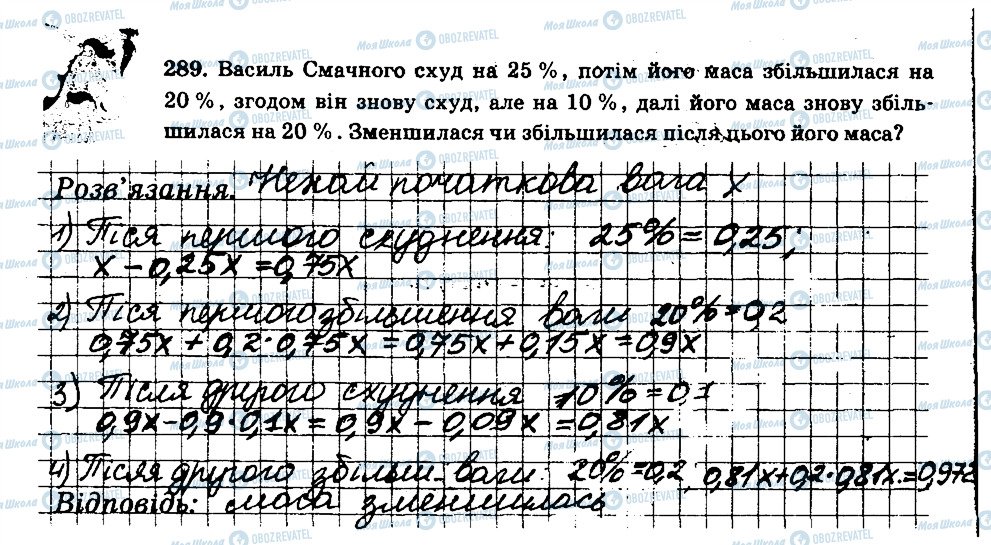 289. Василь Смачного схуд на 25 %, потім його маса збільшилася на
20 %, згодом він знову схуд, але на 10 %, далі його маса знову збіль-
шилася на 20 %. Зменшилася чи збільшилася після цього його маса?
Розв'язання. Нехай початкова вага x
1) Після першого схуднення: 25% = 0,25;
x - 0,25x = 0,75x
2) Після першого збільшення ваги 20% = 0,2
0,75x + 0,2·0,75x = 0,75x + 0,15x = 0,9x
3) Після другого схуднення 10% = 0,1
0,9x - 0,9·0,1x = 0,9x - 0,09x = 0,81x
4) Після другого збільш. ваги: 20% = 0,2, 0,81x + 0,2·0,81x = 0,972
Відповідь: маса зменшилась